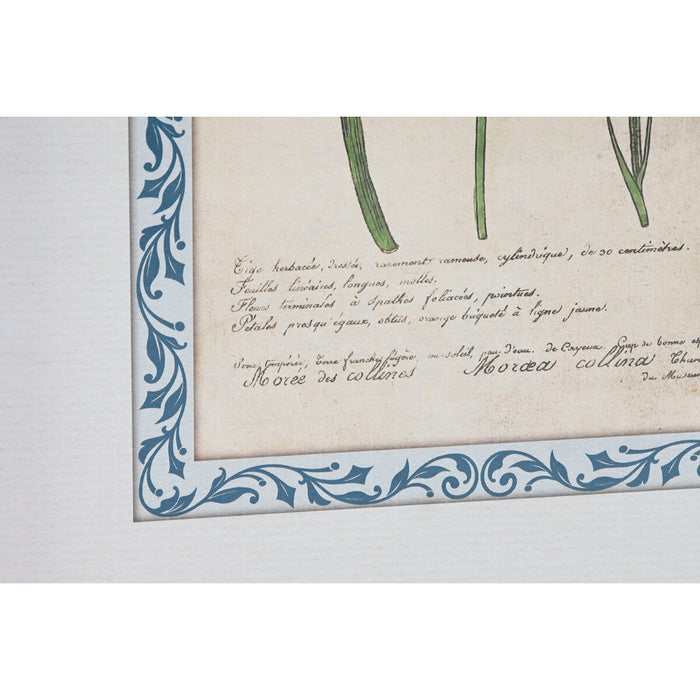 Tige herbacée, dressée, rarement rameuse, cylindrique, de 30 centimètres.
Feuilles linéaires, longues, molles.
Fleurs terminales à spathes foliacés, pointues.
Pétales presqu'égaux, obtus, orange briqueté à ligne jaune.
Serre tempérée, Terre franche légère, mi-soleil, peu d'eau. de Cayeux. Cap de bonne
Morée des collines Moræa collina Thun
du Museu